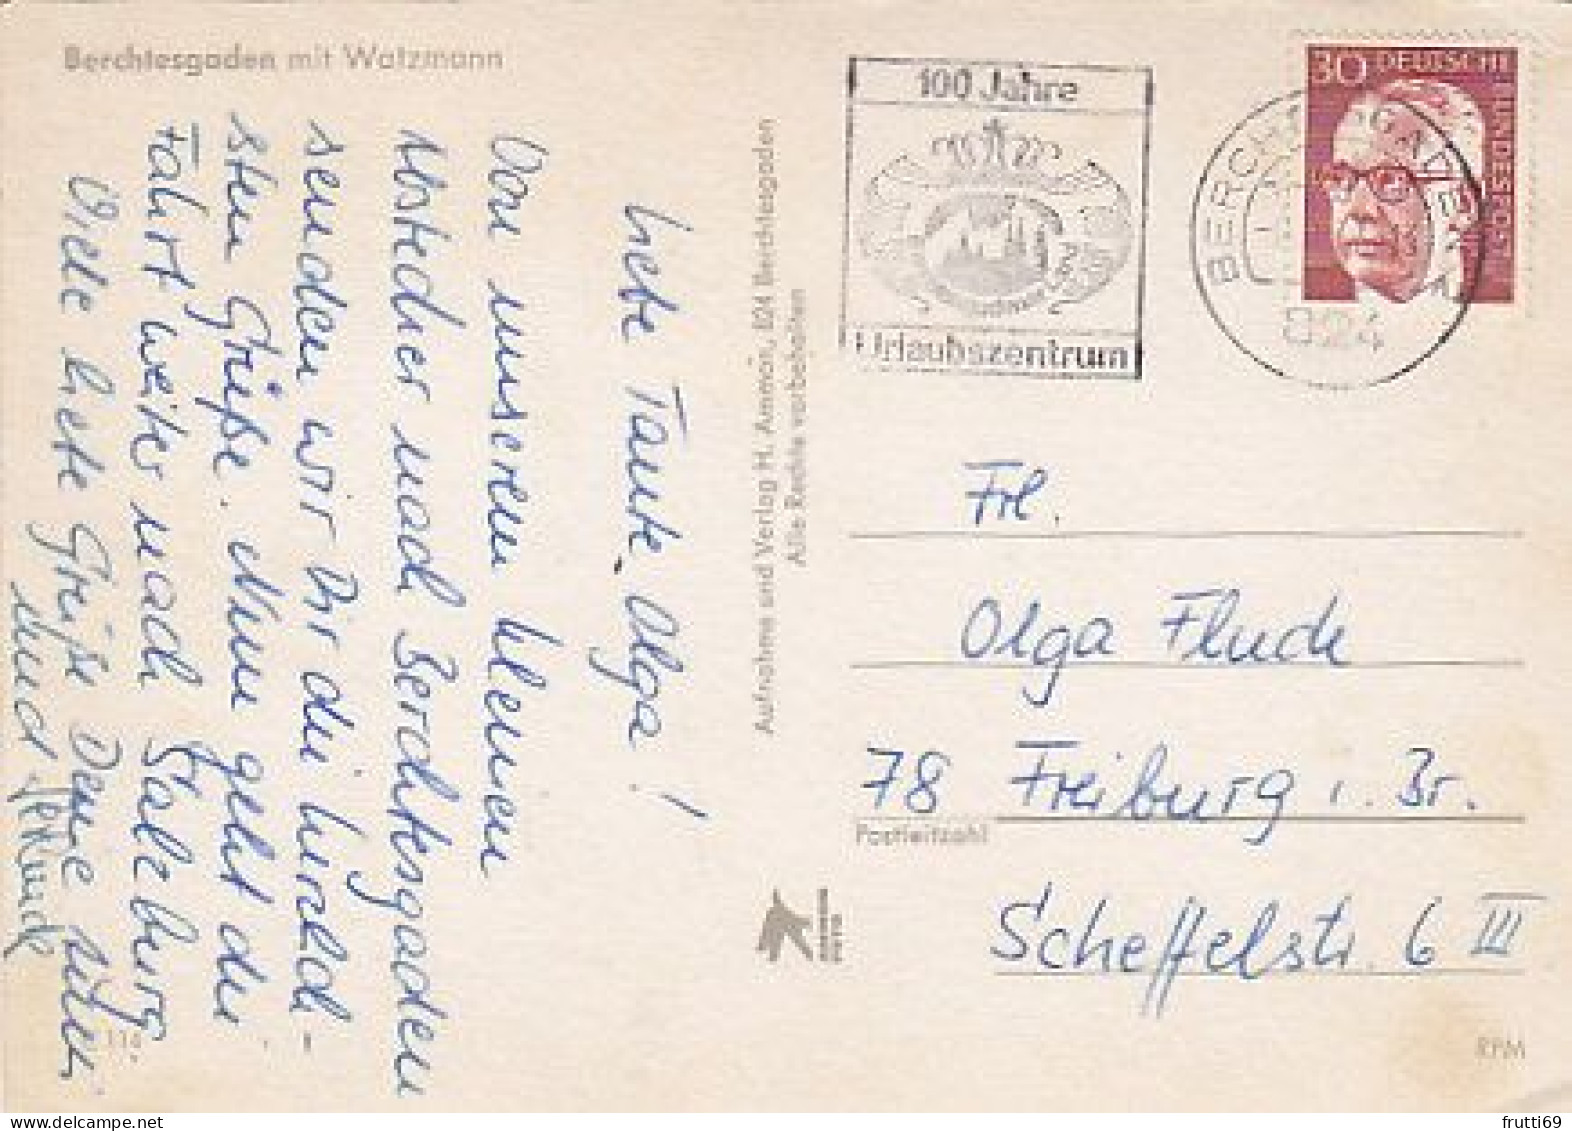 Berchtesgaden mit Watzmann
Liebe Tante Olga!
Von unserem kleinen
Abstecher nach Berchtesgaden
senden wir Dir die herzlich-
sten Grüße. Nun geht die
Fahrt weiter nach Salzburg.
Viele liebe Grüße Deine
und
Aufnahme und Verlag H. Ammon, 824 Berchtesgaden
Alle Rechte vorbehalten
100 Jahre
Urlaubszentrum
BERCHTESGADEN
824
30 DEUTSCHE BUNDESPOST
Frl.
Olga Fluck
78 Freiburg i. Br.
Postleitzahl
Scheffelstr. 6 III
114
RPM
frutti69